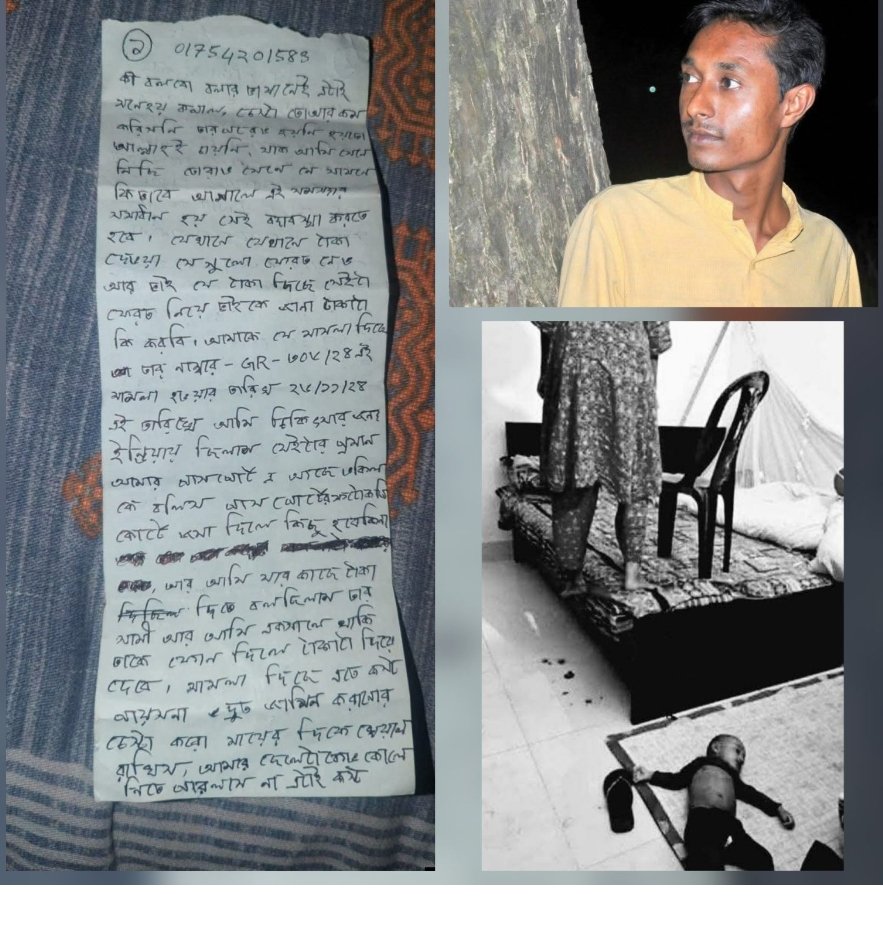 ২ 01754201583
কী বলবো বলার ভাষা নেই এটাই
মনেহয় কপাল, চেষ্টা তো আর কম
করিসনি তার পরেও হয়নি হয়তো
আল্লাহই চায়নি, যাক আমি মেনে
নিছি তোরাও মেনে নে সামনে
কিভাবে আগালে এই সমস্যার
সমাধান হয় সেই ব্যবস্থা করতে
হবে, যেখানে যেখানে টাকা
দেওয়া সে গুলো ফেরত নেও
আর ভাই যে টাকা দিছে সেইটা
ফেরত নিয়ে ভাইকে টাকাটা
কি করবি, আমাকে যে মামলা দিছে
তার নাম্বার - GR - ৬০৮/২৪ এই
মামলা হওয়ার তারিখ ২৮/১১/২৪
এই তারিখে আমি চিকিৎসার জন্য
ইন্ডিয়ায় ছিলাম সেইটার প্রমান
আমার পাসপোর্ট এ আছে উকিল
কে বলিস পাস পোর্টের ফটোকপি
কোর্টে জমা দিলে কিছু হবে কিনা
আর আমি যার কাছে টাকা
দিতে বলছিলাম তার
স্বামী আর আমি একসাথে থাকি
তাকে ফোন দিলে টাকাটা দিয়ে
দেবে, মামলা দিছে এতে কষ্ট
পায়মনা দ্রুত জামিন করানোর
চেষ্টা করো মায়ের দিকে খেয়াল
রাখিস, আমার ছেলেটাকে কোলে
নিতে পারলাম না এটাই কষ্ট